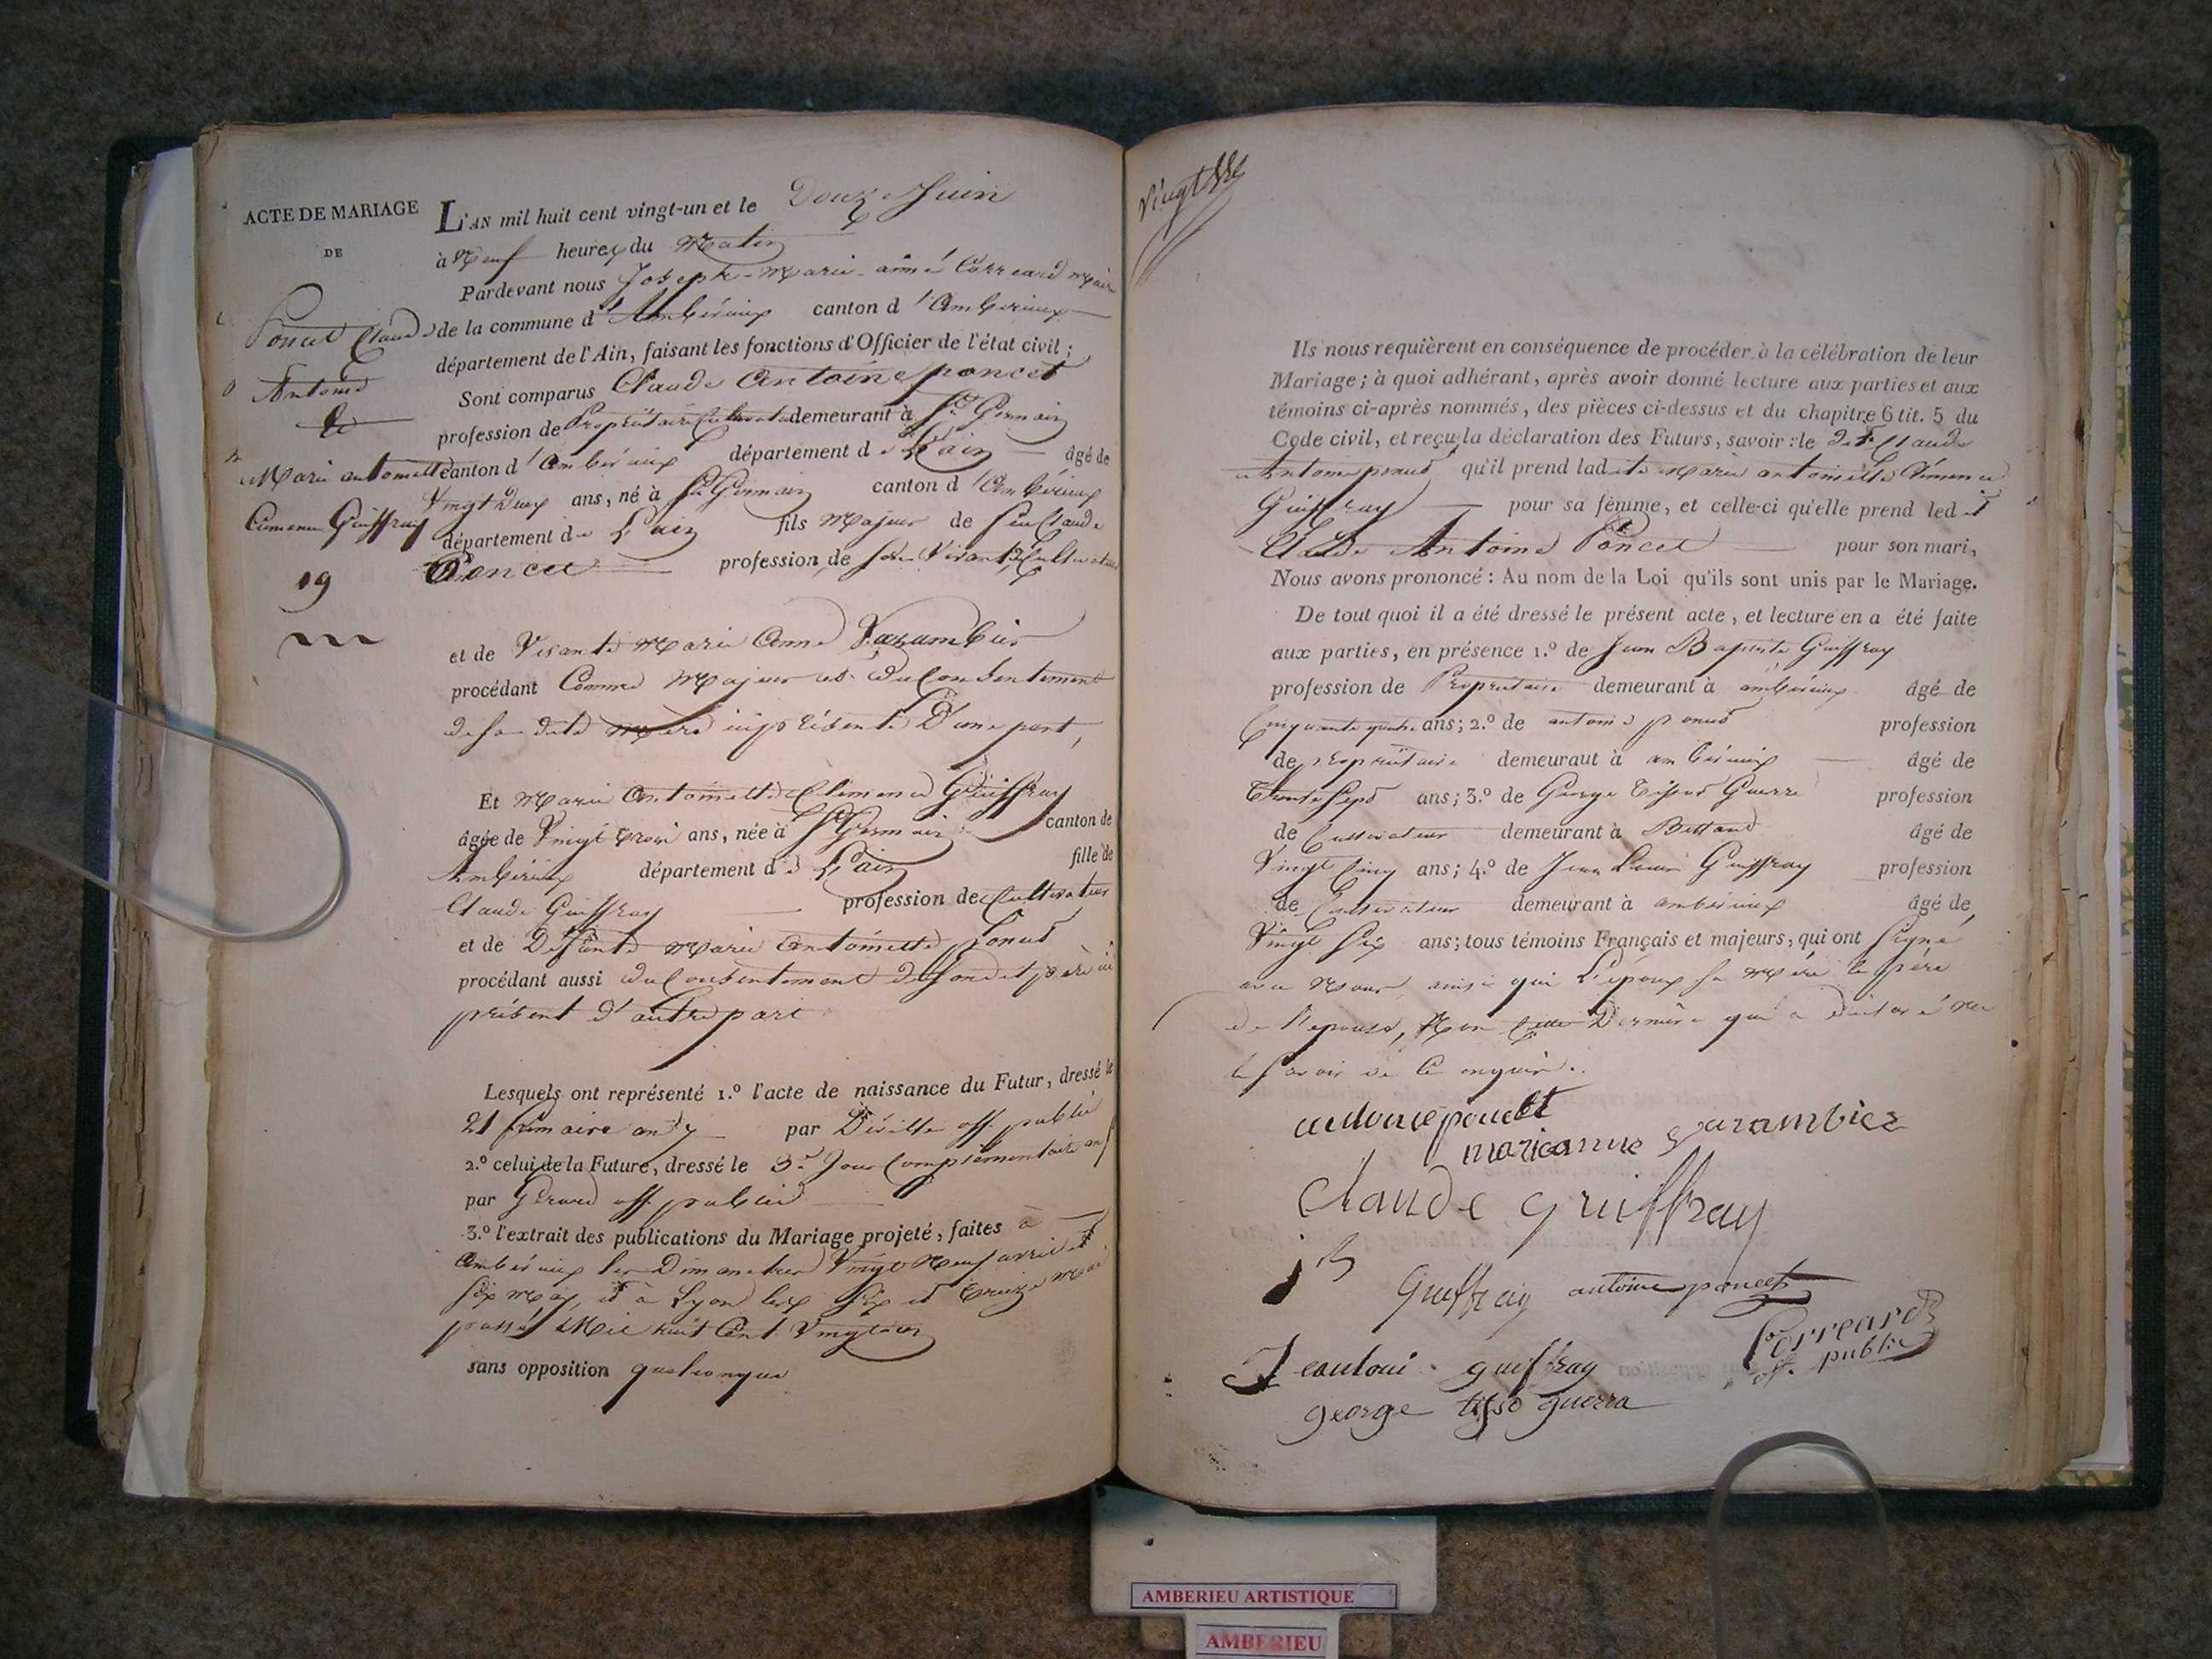 ACTE DE MARIAGE
DE
Poncet Claude
Antoine
et
Marie antoinette
Clemence Guiffray
19
L'AN mil huit cent vingt-un et le Douze Juin
à Neuf heures du Matin
Pardevant nous Joseph-Marie-aimé Correard Maire
de la commune d'Ambérieux canton d'Ambérieux
département de l'Ain, faisant les fonctions d'Officier de l'état civil;
Sont comparus Claude Antoine poncet
profession de Propriétaire Cultivateur demeurant à St Germain
canton d'ambérieux département de L'ain âgé de
Vingt Deux ans, né à St Germain canton d'Ambérieux
département de L'ain fils Majeur de feu Claude
Poncet profession de Son Vivant Cultivateur
et de Vivante Marie Anne Sarambier
procédant Comme Majeur et du Consentement
de sa dite Mère ici présente D'une part,
Et Marie Antoinette Clemence Guiffray
âgée de Vingt trois ans, née à St Germain canton de
Ambérieux département de L'ain fille de
Claude Guiffray profession de Cultivateur
et de Défunte Marie Antoinette Poncet
procédant aussi du Consentement de son dit père ici
présent d'autre part
Lesquels ont représenté 1.º l'acte de naissance du Futur, dressé le
21 frimaire an 7 par Déville off. public
2.º celui de la Future, dressé le 3e Jour Complémentaire an
par Gérard off. public
3.º l'extrait des publications du Mariage projeté, faites à
Ambérieux les Dimanches Vingt Neuf avril et
Six May, et à Lyon les Six et Treize Mai
passé, Mil huit Cent Vingt un
sans opposition quelconque
Ils nous requièrent en conséquence de procéder à la célébration de leur
Mariage; à quoi adhérant, après avoir donné lecture aux parties et aux
témoins ci-après nommés, des pièces ci-dessus et du chapitre 6 tit. 5 du
Code civil, et reçu la déclaration des Futurs, savoir: le dit Claude
Antoine poncet qu'il prend ladite Marie antoinette Clémence
Guiffray pour sa femme, et celle-ci qu'elle prend ledit
Claude Antoine Poncet pour son mari,
Nous avons prononcé: Au nom de la Loi qu'ils sont unis par le Mariage.
De tout quoi il a été dressé le présent acte, et lecture en a été faite
aux parties, en présence 1.º de Jean Baptiste Guiffray
profession de Propriétaire demeurant à ambérieux âgé de
Cinquante quatre ans; 2.º de antoine poncet profession
de propriétaire demeuraut à ambérieux âgé de
Trente Sept ans; 3.º de George Tissot Guerre profession
de Cultivateur demeurant à Bettand âgé de
Vingt Cinq ans; 4.º de Jean Louis Guiffray profession
de Cultivateur demeurant à ambérieux âgé de
Vingt Six ans; tous témoins Français et majeurs, qui ont Signé
avec Nous ainsi que L'époux sa Mère le père
de l'épouse, Non Cette Dernière qui a déclaré ne
le Savoir de Ce enquise.
antoine poncet
marieanne Sarambier
claude guiffray
j B Guiffray antoine poncet
Correard off. public
Jeanloui guiffray
george tissô guerra
AMBERIEU ARTISTIQUE
AMBERIEU